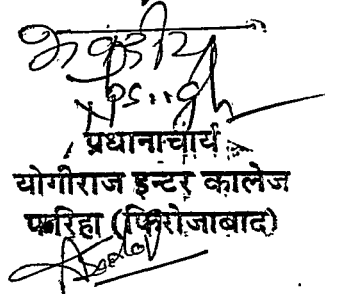 भवदीय
प्रधानाचार्य
योगीराज इन्टर कालेज
फरिहा (फिरोजाबाद)